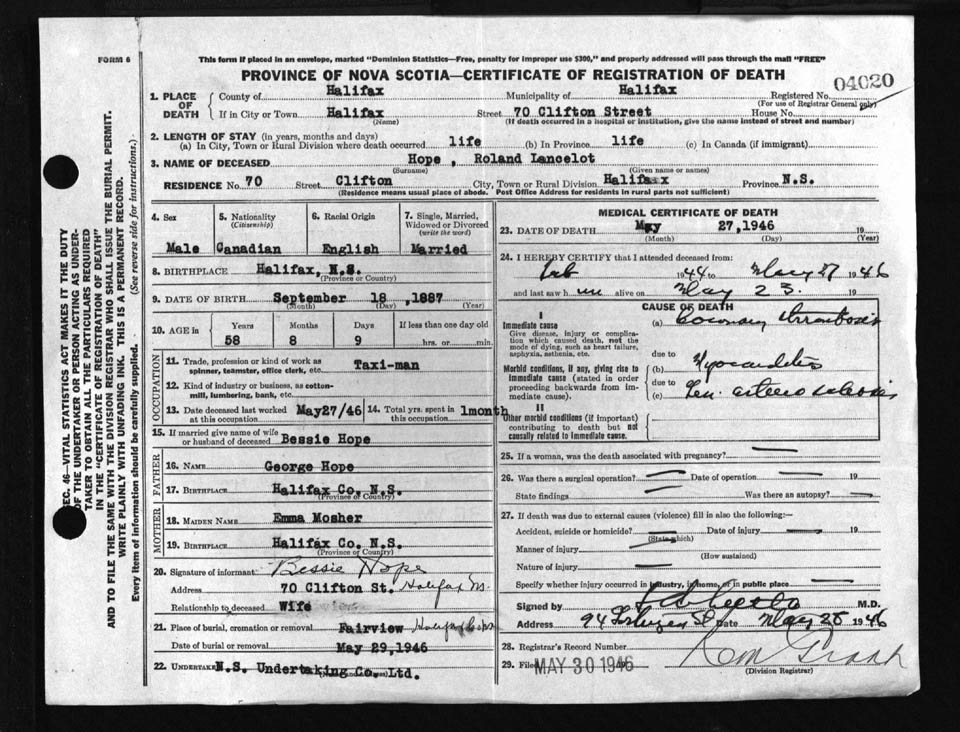 FORM 6
This form if placed in an envelope, marked "Dominion Statistics—Free, penalty for improper use $300," and properly addressed will pass through the mail "FREE"
PROVINCE OF NOVA SCOTIA—CERTIFICATE OF REGISTRATION OF DEATH
04020
1. PLACE OF DEATH
County of Halifax Municipality of Halifax Registered No.
(For use of Registrar General only)
If in City or Town Halifax Street 70 Clifton Street House No.
(Name) (If death occurred in a hospital or institution, give the name instead of street and number)
2. LENGTH OF STAY (in years, months and days)
(a) In City, Town or Rural Division where death occurred life (b) In Province life (c) In Canada (if immigrant)
3. NAME OF DECEASED Hope , Roland Lancelot
(Surname) (Given name or names)
RESIDENCE No. 70 Street Clifton City, Town or Rural Division Halifax Province N.S.
(Residence means usual place of abode. Post Office Address for residents in rural parts not sufficient)
4. Sex 5. Nationality (Citizenship) 6. Racial Origin 7. Single, Married, Widowed or Divorced (write the word)
Male Canadian English Married
8. BIRTHPLACE Halifax, N.S.
(Province or Country)
9. DATE OF BIRTH September 18 ,1887
(Month) (Day) (Year)
10. AGE in Years Months Days If less than one day old
58 8 9 hrs. or min.
OCCUPATION
11. Trade, profession or kind of work as spinner, teamster, office clerk, etc. Taxi-man
12. Kind of industry or business, as cotton-mill, lumbering, bank, etc.
13. Date deceased last worked at this occupation May27/46 14. Total yrs. spent in this occupation 1month
15. If married give name of wife or husband of deceased Bessie Hope
FATHER
16. NAME George Hope
17. BIRTHPLACE Halifax Co. N.S.
(Province or Country)
MOTHER
18. MAIDEN NAME Emma Mosher
19. BIRTHPLACE Halifax Co. N.S.
(Province or Country)
20. Signature of informant Bessie Hope
Address 70 Clifton St. Halifax
Relationship to deceased Wife
21. Place of burial, cremation or removal Fairview Halifax
Date of burial or removal May 29,1946
22. UNDERTAKER N.S. Undertaking Co. Ltd.
MEDICAL CERTIFICATE OF DEATH
23. DATE OF DEATH May 27,1946 19
(Month) (Day) (Year)
24. I HEREBY CERTIFY that I attended deceased from:
Feb 1944 to May 27 1946
and last saw h im alive on May 23. 19
CAUSE OF DEATH
I
Immediate cause
Give disease, injury or complication which caused death, not the mode of dying, such as heart failure, asphyxia, asthenia, etc.
(a) Coronary thrombosis
due to
Morbid conditions, if any, giving rise to immediate cause (stated in order proceeding backwards from immediate cause).
(b) Myocarditis
due to
(c) Gen. arteriosclerosis
II
Other morbid conditions (if important) contributing to death but not causally related to immediate cause.
25. If a woman, was the death associated with pregnancy?
26. Was there a surgical operation? Date of operation 19
State findings Was there an autopsy?
27. If death was due to external causes (violence) fill in also the following:—
Accident, suicide or homicide? Date of injury 19
(State which)
Manner of injury
(How sustained)
Nature of injury
Specify whether injury occurred in industry, in home, or in public place
Signed by M.D.
Address 94 St Date May 28 1946
28. Registrar's Record Number
29. Filed MAY 30 1946
(Division Registrar)
SEC. 46—VITAL STATISTICS ACT MAKES IT THE DUTY OF THE UNDERTAKER OR PERSON ACTING AS UNDERTAKER TO OBTAIN ALL THE PARTICULARS REQUIRED IN THE "CERTIFICATE OF REGISTRATION OF DEATH" AND TO FILE THE SAME WITH THE DIVISION REGISTRAR WHO SHALL ISSUE THE BURIAL PERMIT.
WRITE PLAINLY WITH UNFADING INK. THIS IS A PERMANENT RECORD.
Every item of information should be carefully supplied. (See reverse side for instructions.)